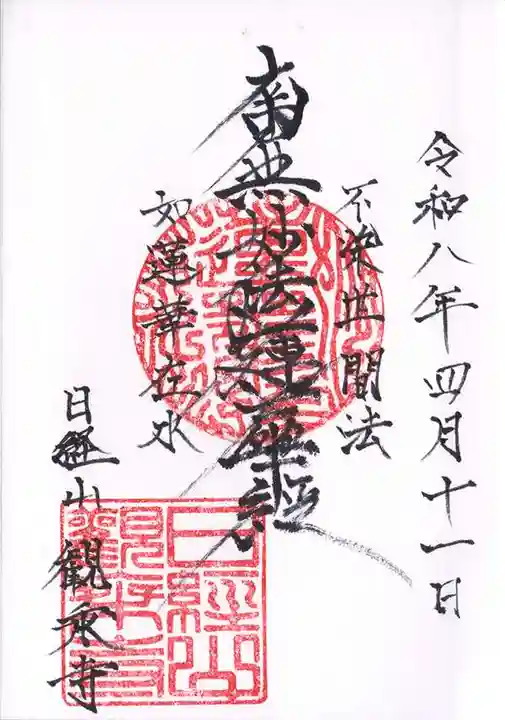 令和八年四月十一日
不染世間法
南無妙法蓮華経
如蓮華在水
日経山 観永寺